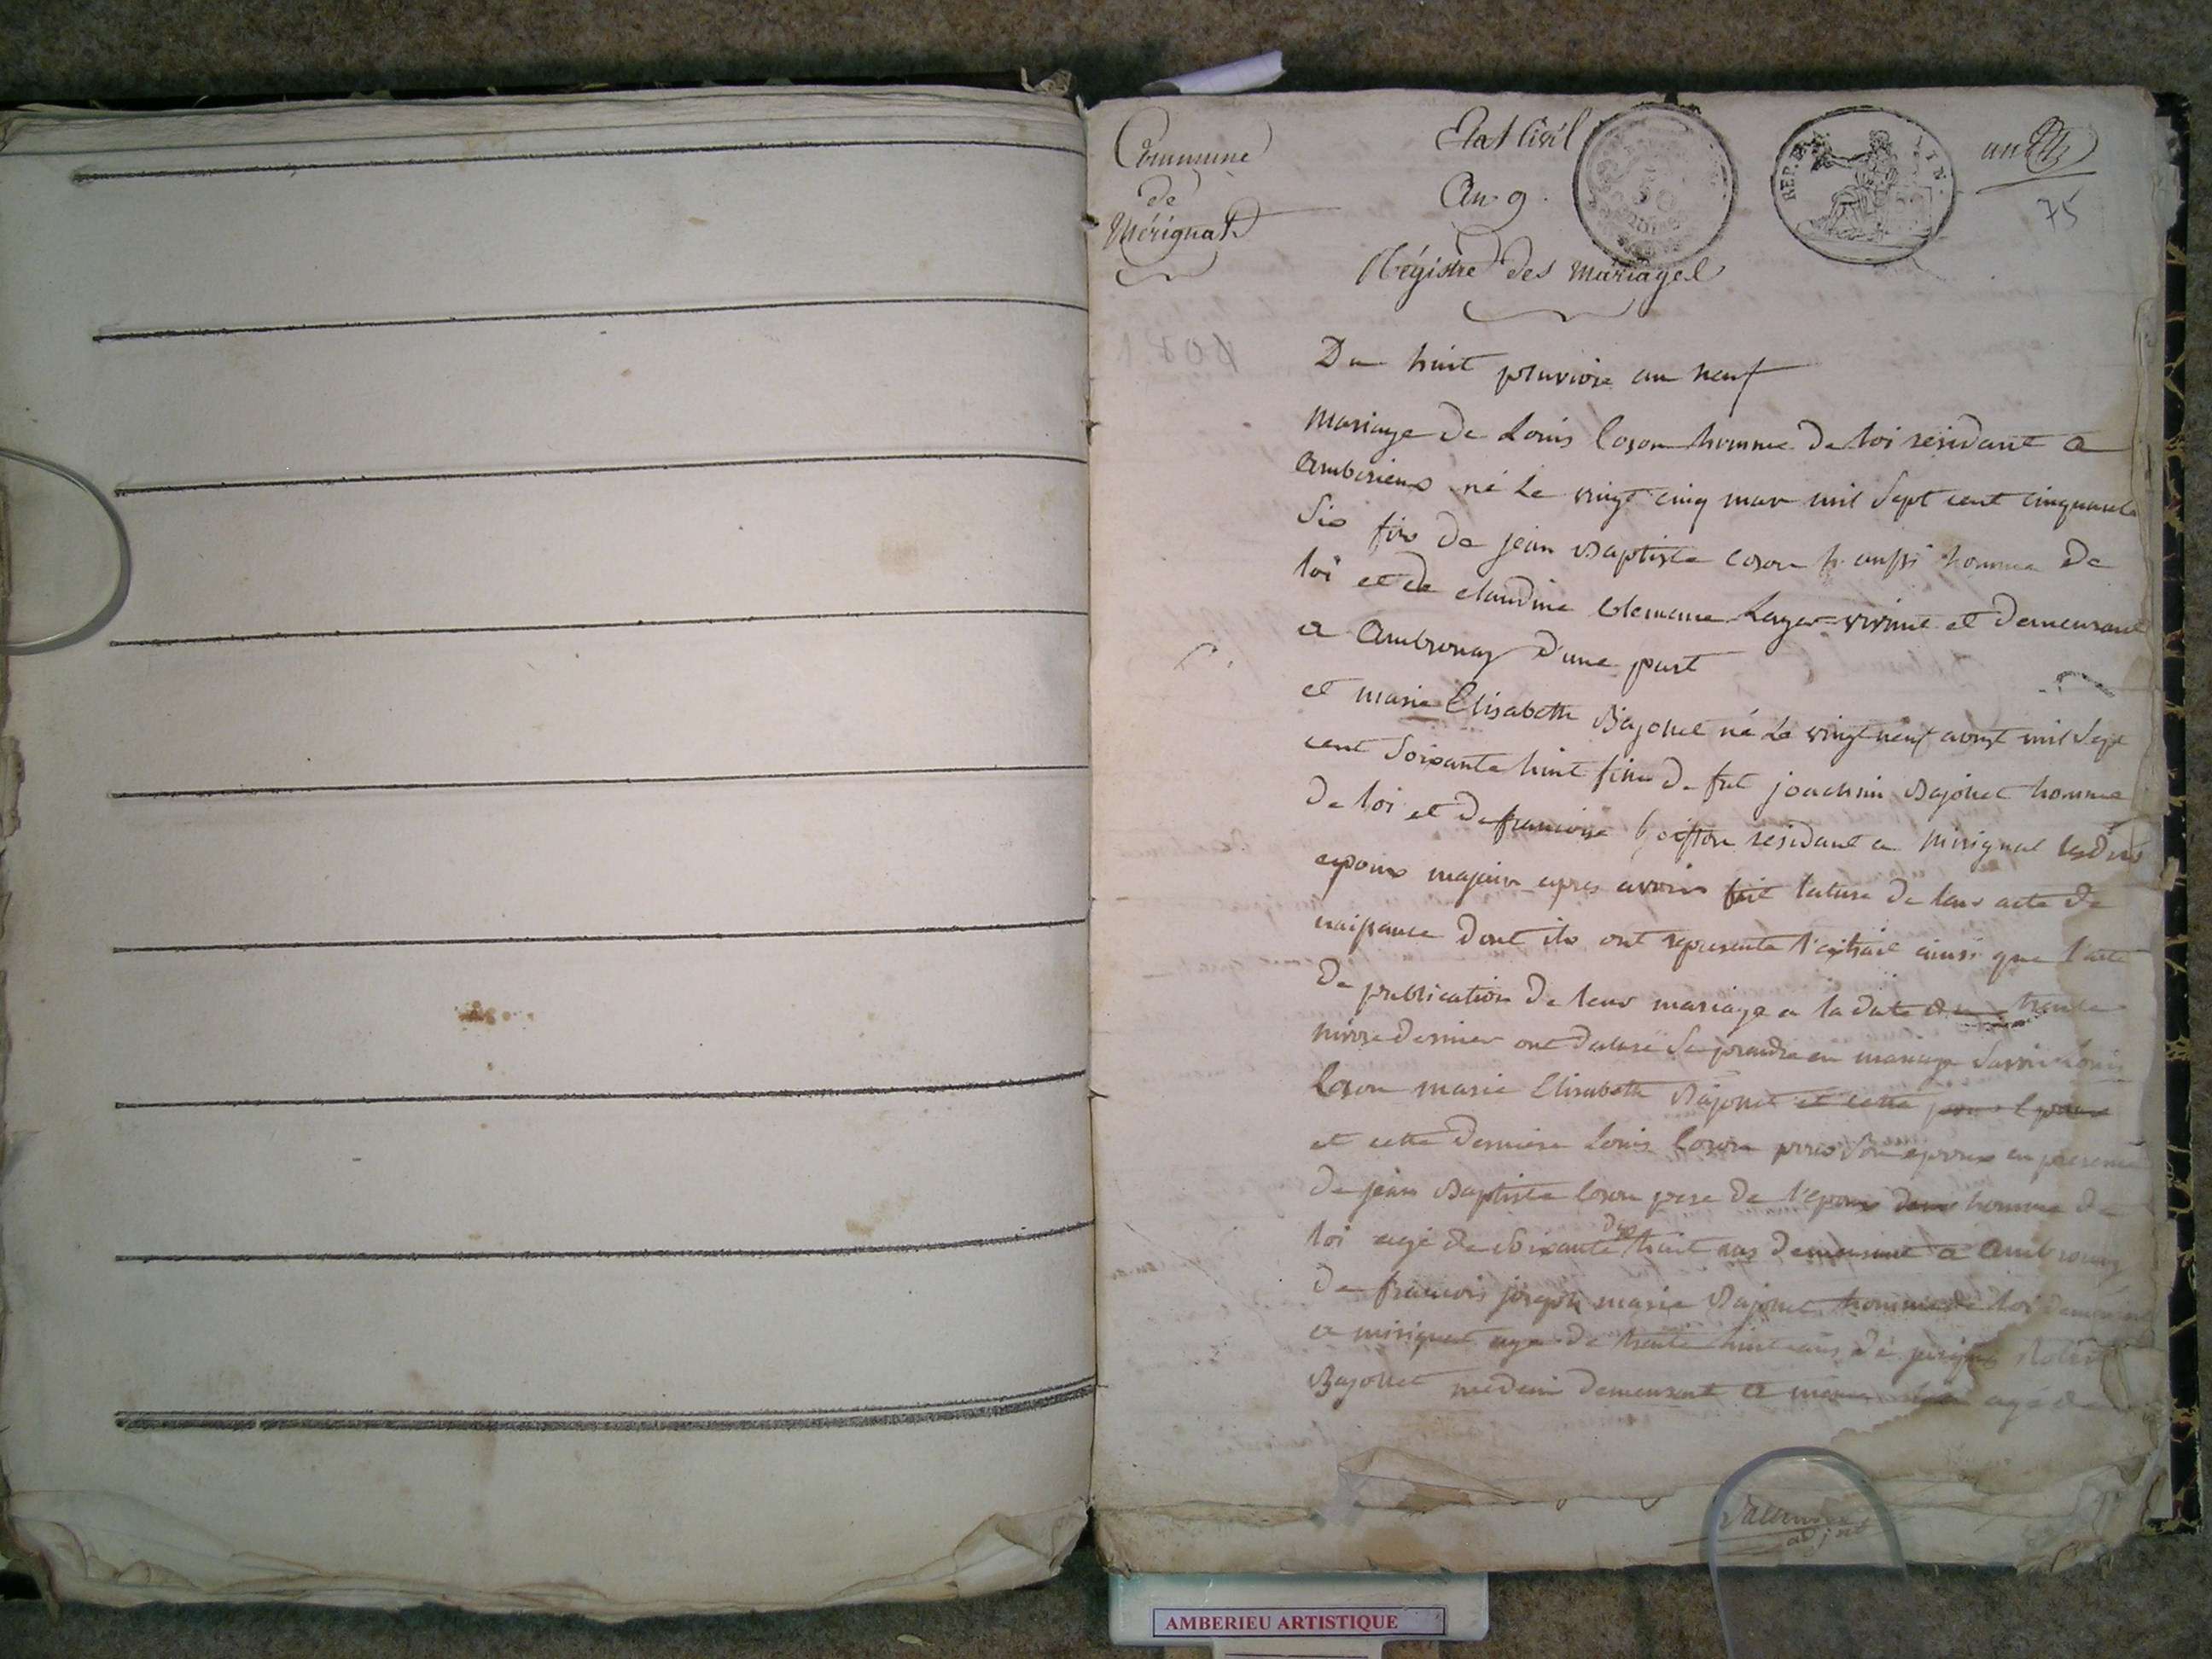 Commune
de
Mérignat
Etat Civil
An 9.
REP. FRA
75
Régistre des mariages
Du huit pluviose an neuf
mariage de Louis Cozon homme de loi résidant a
Amberieux né le vingt cinq mars mil sept cent cinquante
Six fils de jean Baptiste cozon aussi homme de
loi et de claudine vivant et demeurant
a Ambronay d'une part
et marie Elisabeth Bajollet né le vingt neuf avril mil sept
cent soixante huit fille de fut joachim Bajollet homme
de loi et de francoise résidant a mirignat lesdits
epoux majeurs apres avoir fait lecture de leur acte de
naissance dont ils ont representé l'extrait ainsi que l'acte
de publication de leur mariage a la date du trente
nivose dernier ont declaré se prendre en mariage savoir Louis
Cozon marie Elisabeth Bajollet et cette
et cette derniere Louis Cozon pour son epoux en presence
de jean Baptiste Cozon pere de l'epoux homme de
loi agé de soixante dix huit ans demeurant a Ambronay
de francois joseph marie Bajollet homme de loi demeurant
a mirignat age de trente huit ans de
Bajollet medecin demeurant a agé de
adjoint
AMBERIEU ARTISTIQUE